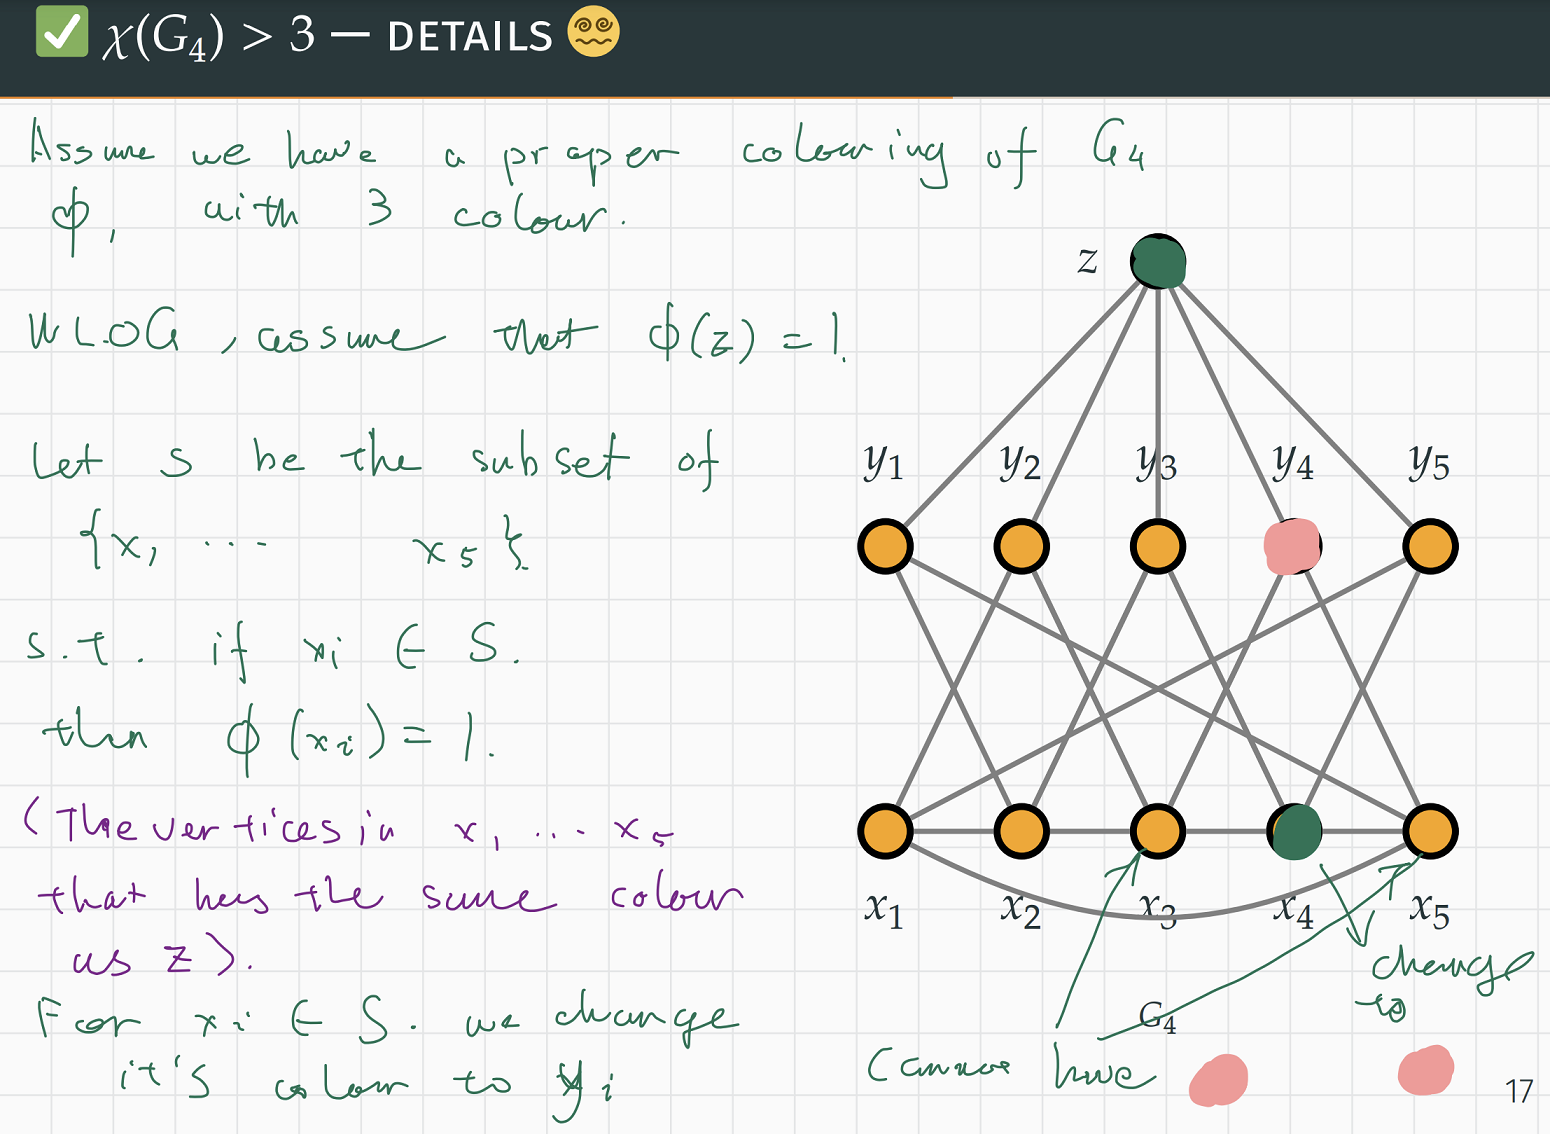 ✅ χ(G₄) > 3 — DETAILS 😵‍💫
Assume we have a proper colouring of G₄
ϕ, with 3 colour.
WLOG, assume that ϕ(z) = 1.
Let S be the subset of
{x₁ ... x₅}
s.t. if xᵢ ∈ S.
then ϕ(xᵢ) = 1.
(The vertices in x₁ ... x₅
that has the same colour
as z).
For xᵢ ∈ S. we change
it's colour to yᵢ
z
y₁ y₂ y₃ y₄ y₅
x₁ x₂ x₃ x₄ x₅
change
to
G₄
Cannot have
17